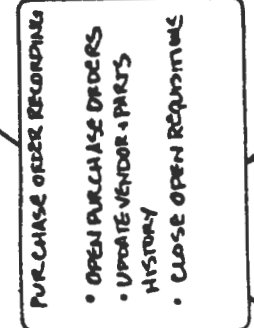 PURCHASE ORDER RECORDING
• OPEN PURCHASE ORDERS
• UPDATE VENDOR + PARTS
HISTORY
• CLOSE OPEN REQUISITIONS